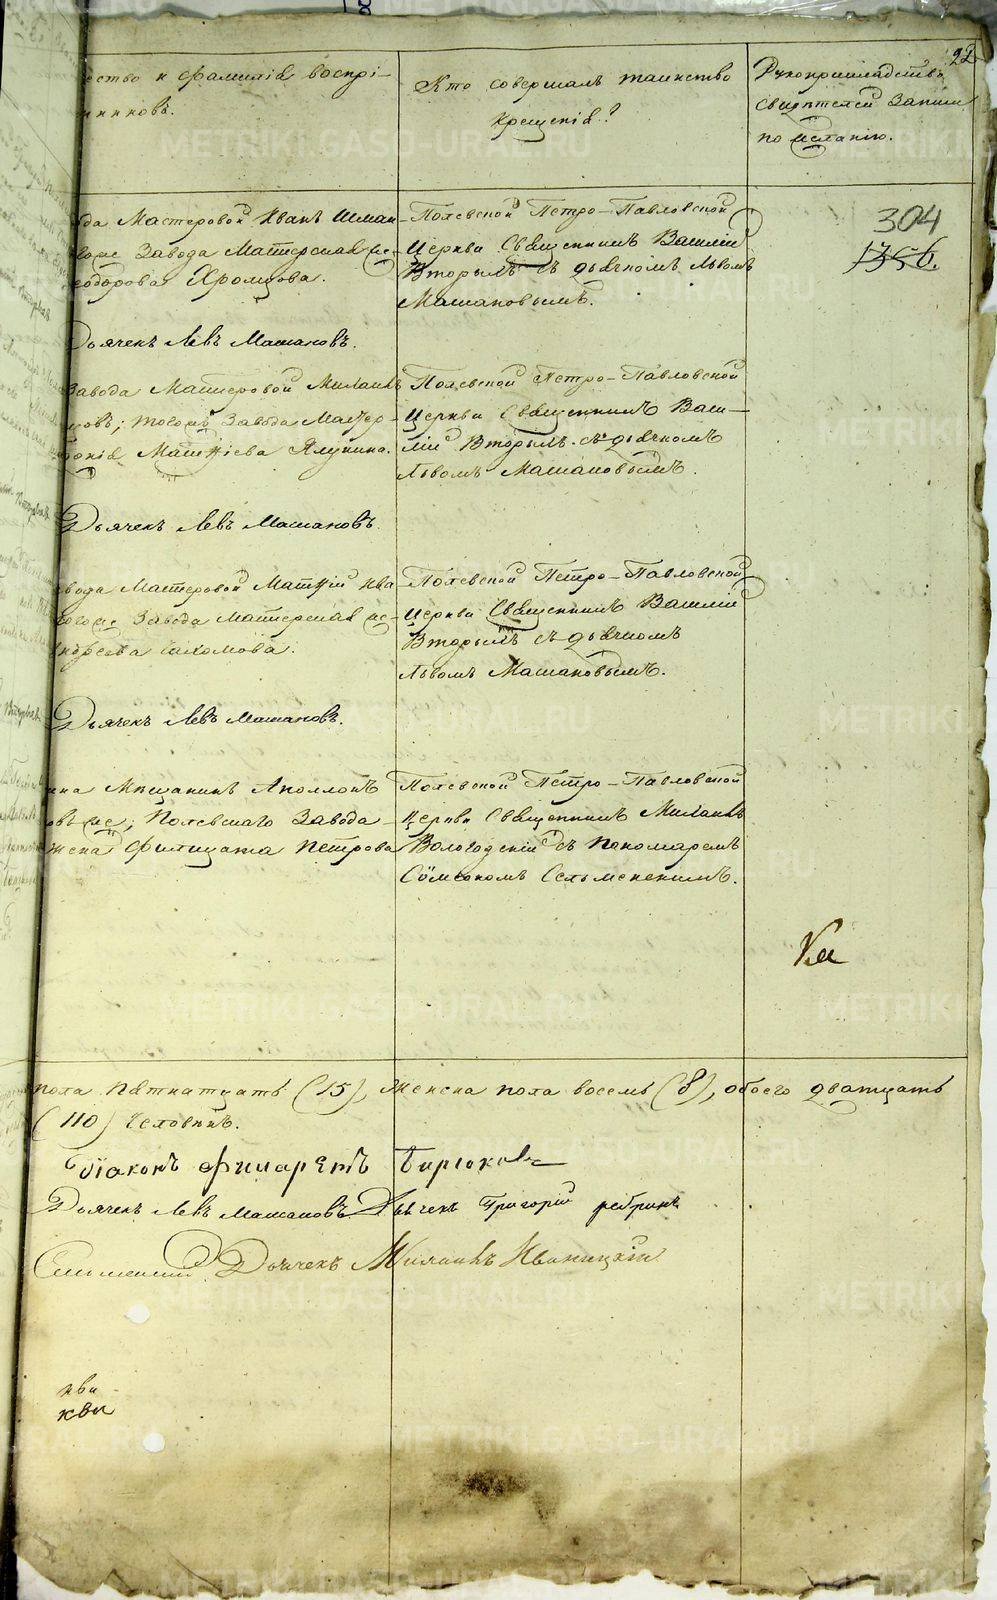 22
ство и фамилія воспрі-
никовъ.
Кто совершалъ таинство
крещенія?
Рукоприкладство
свидѣтелей записи
по желанію.
304
1356.
да Мастеровой Иванъ
Завода Мастерская
еодорова Хромцова.
Полевской Петро-Павловской
Церкви Священникъ Василій
Вторыхъ съ дьячкомъ Львомъ
Машановымъ.
Дьячекъ Левъ Машановъ.
Завода Мастеровой Михаилъ
новъ; тогожъ Завода Мастер-
Матѳіева Ялунина.
Полевской Петро-Павловской
Церкви Священникъ Васи-
лій Вторыхъ съ дьячкомъ
Львомъ Машановымъ.
Дьячекъ Левъ Машановъ.
вода Мастеровой Матѳій Ива-
Завода Мастерская
ндреева Пахомова.
Полевской Петро-Павловской
Церкви Священникъ Василій
Вторыхъ съ дьячкомъ
Львомъ Машановымъ.
Дьячекъ Левъ Машановъ.
Мѣщанинъ Аполлонъ
Полевскаго Завода
жена Филицата Петрова
Полевской Петро-Павловской
Церкви Священникъ Михаилъ
Вологодскій съ пономаремъ
Сѵмеономъ Сельменскимъ.
пола пятнатцать (15), женска пола восемь (8), обоего дватцать
(110) человѣкъ.
Діаконъ Филаретъ Бирюковъ
Дьячекъ Левъ Машановъ Дьячекъ Григорій
Дьячекъ Михаилъ